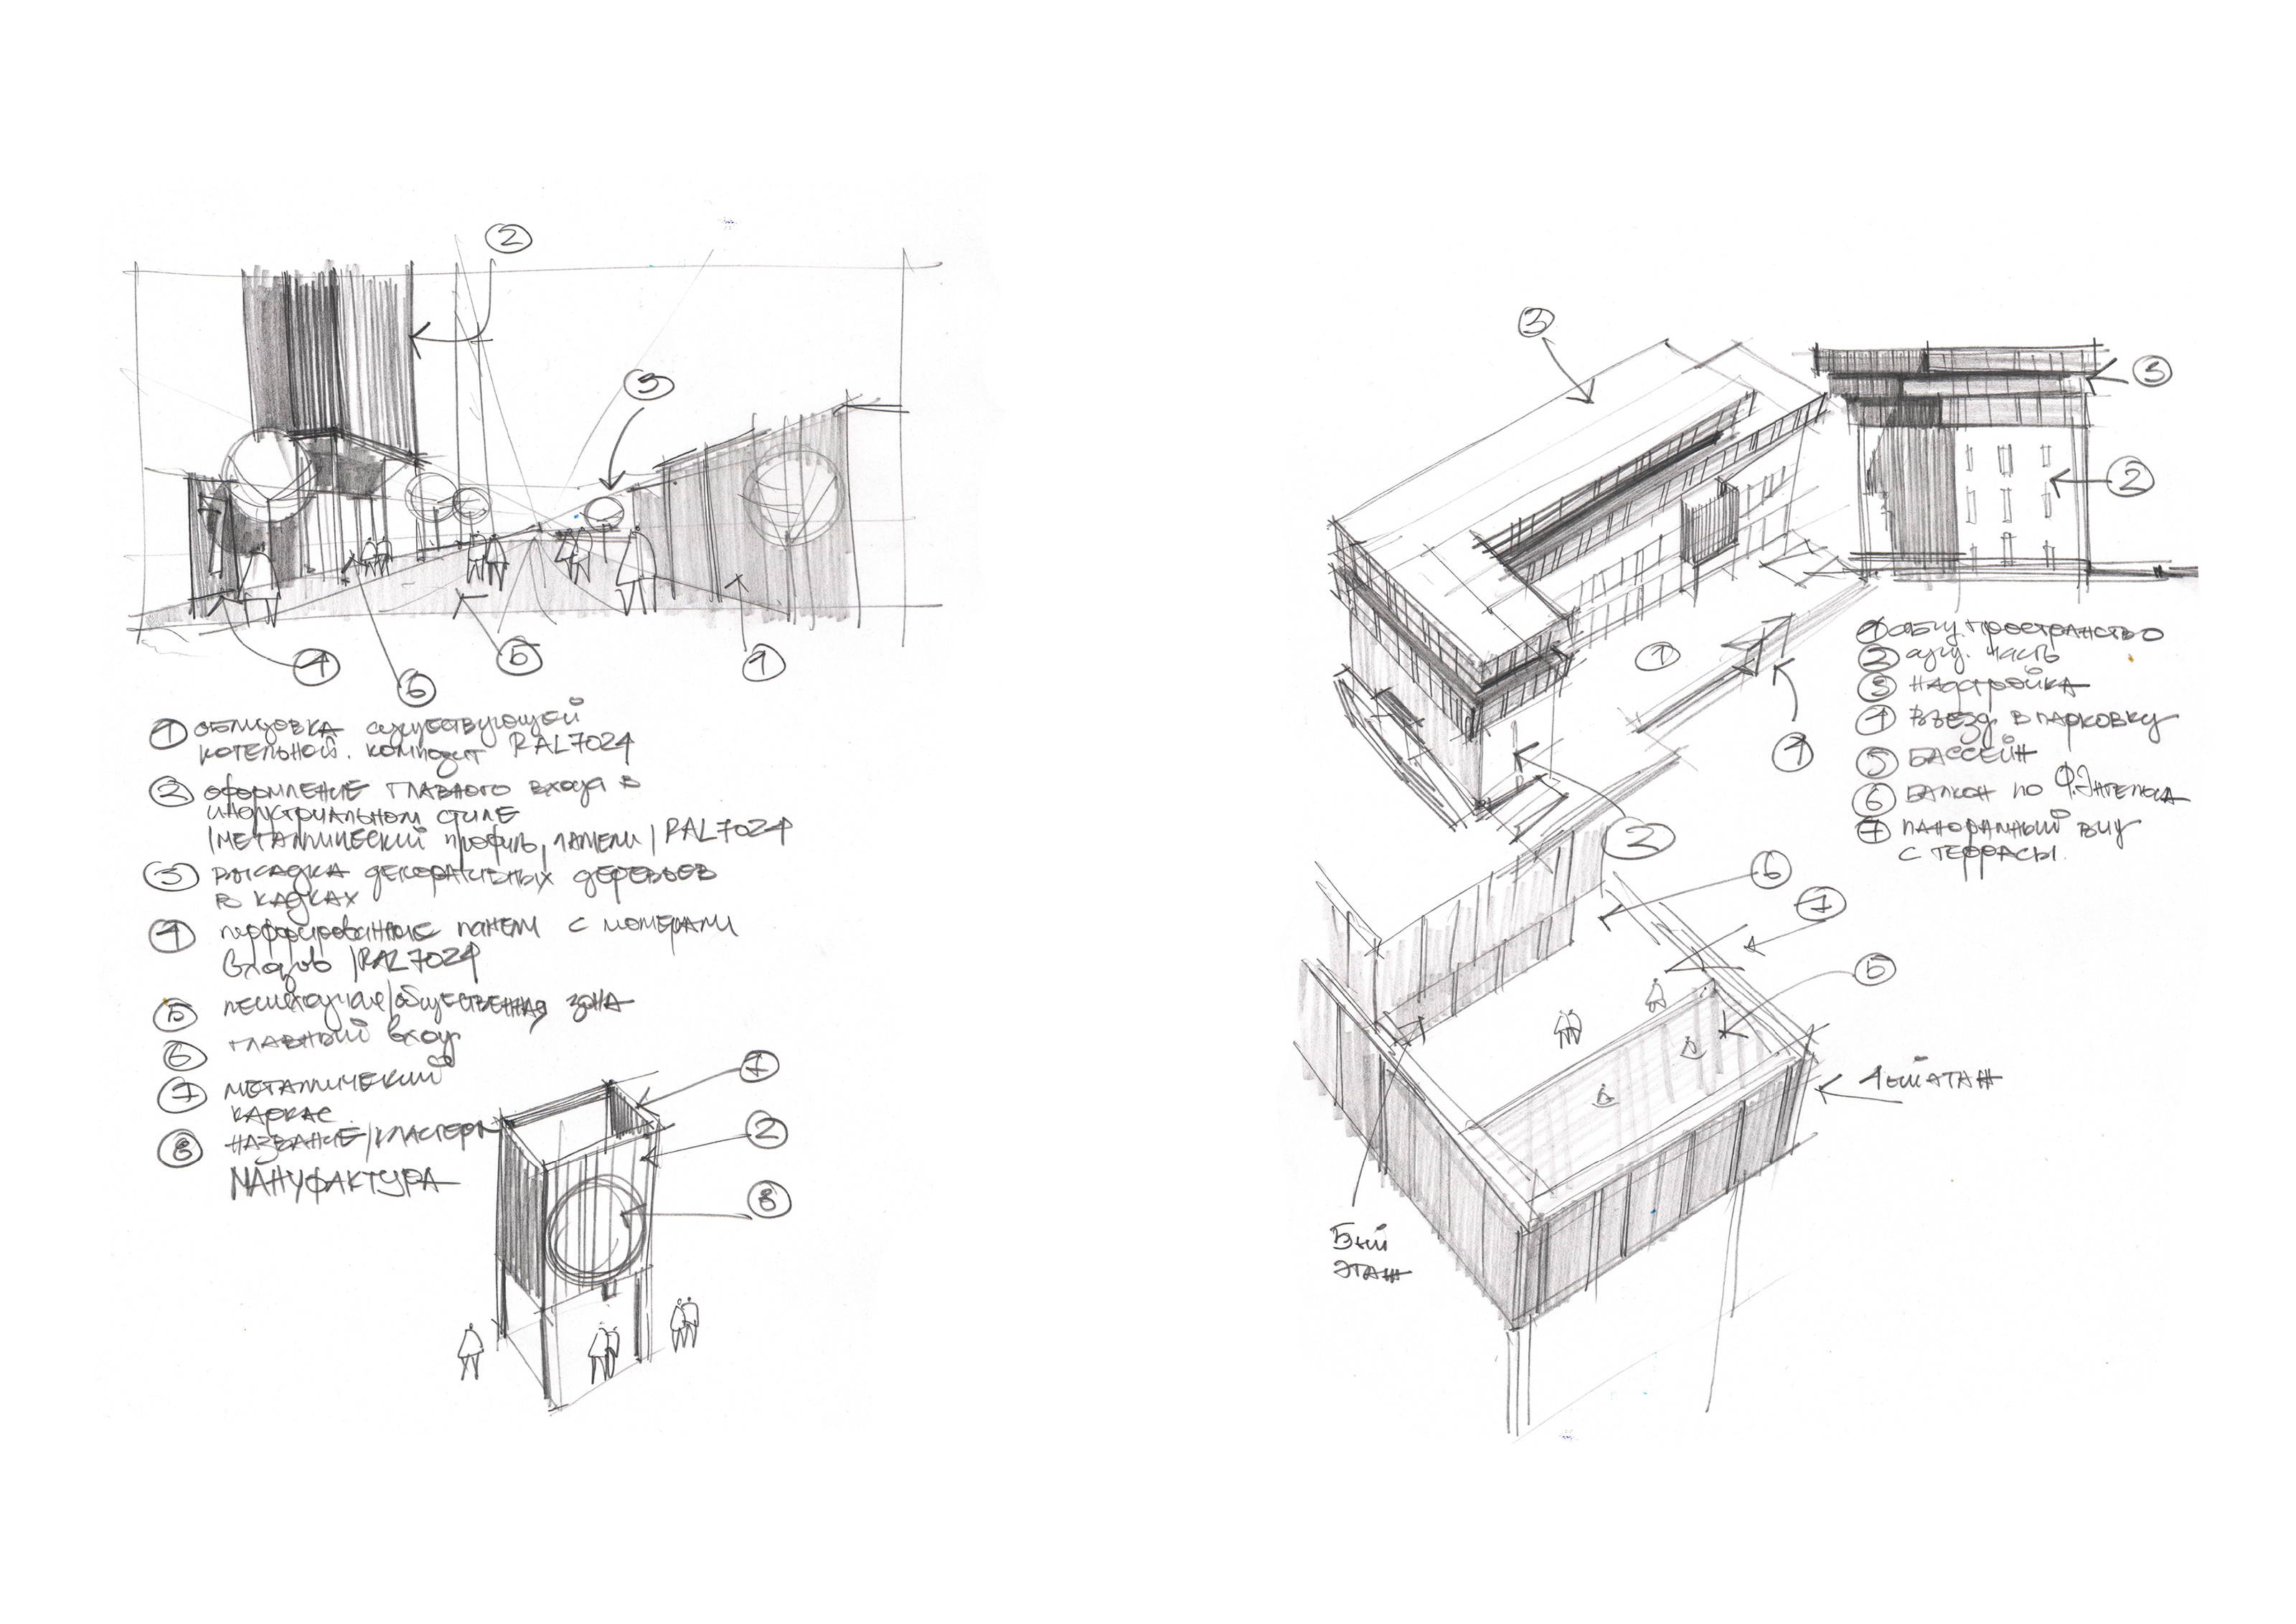 2
3
4
6
5
1
1 облицовка существующей
котельной. композит RAL7024
2 оформление главного входа в
индустриальном стиле
/металлический профиль, ламели/ RAL7024
3 высадка декоративных деревьев
в кадках
4 перфорированные панели с номерами
входов /RAL7024
5 пешеходная/общественная зона
6 главный вход
7 металлический
каркас
8 название/кластера
МАНУФАКТУРА
7
2
8
3
3
2
1
4
2
1 общ. пространство
2 сущ. часть
3 надстройка
4 въезд в парковку
5 бассейн
6 балкон по Ф.Энгельса
7 панорамный вид
с террасы.
6
7
5
4ый этаж
5ый
этаж